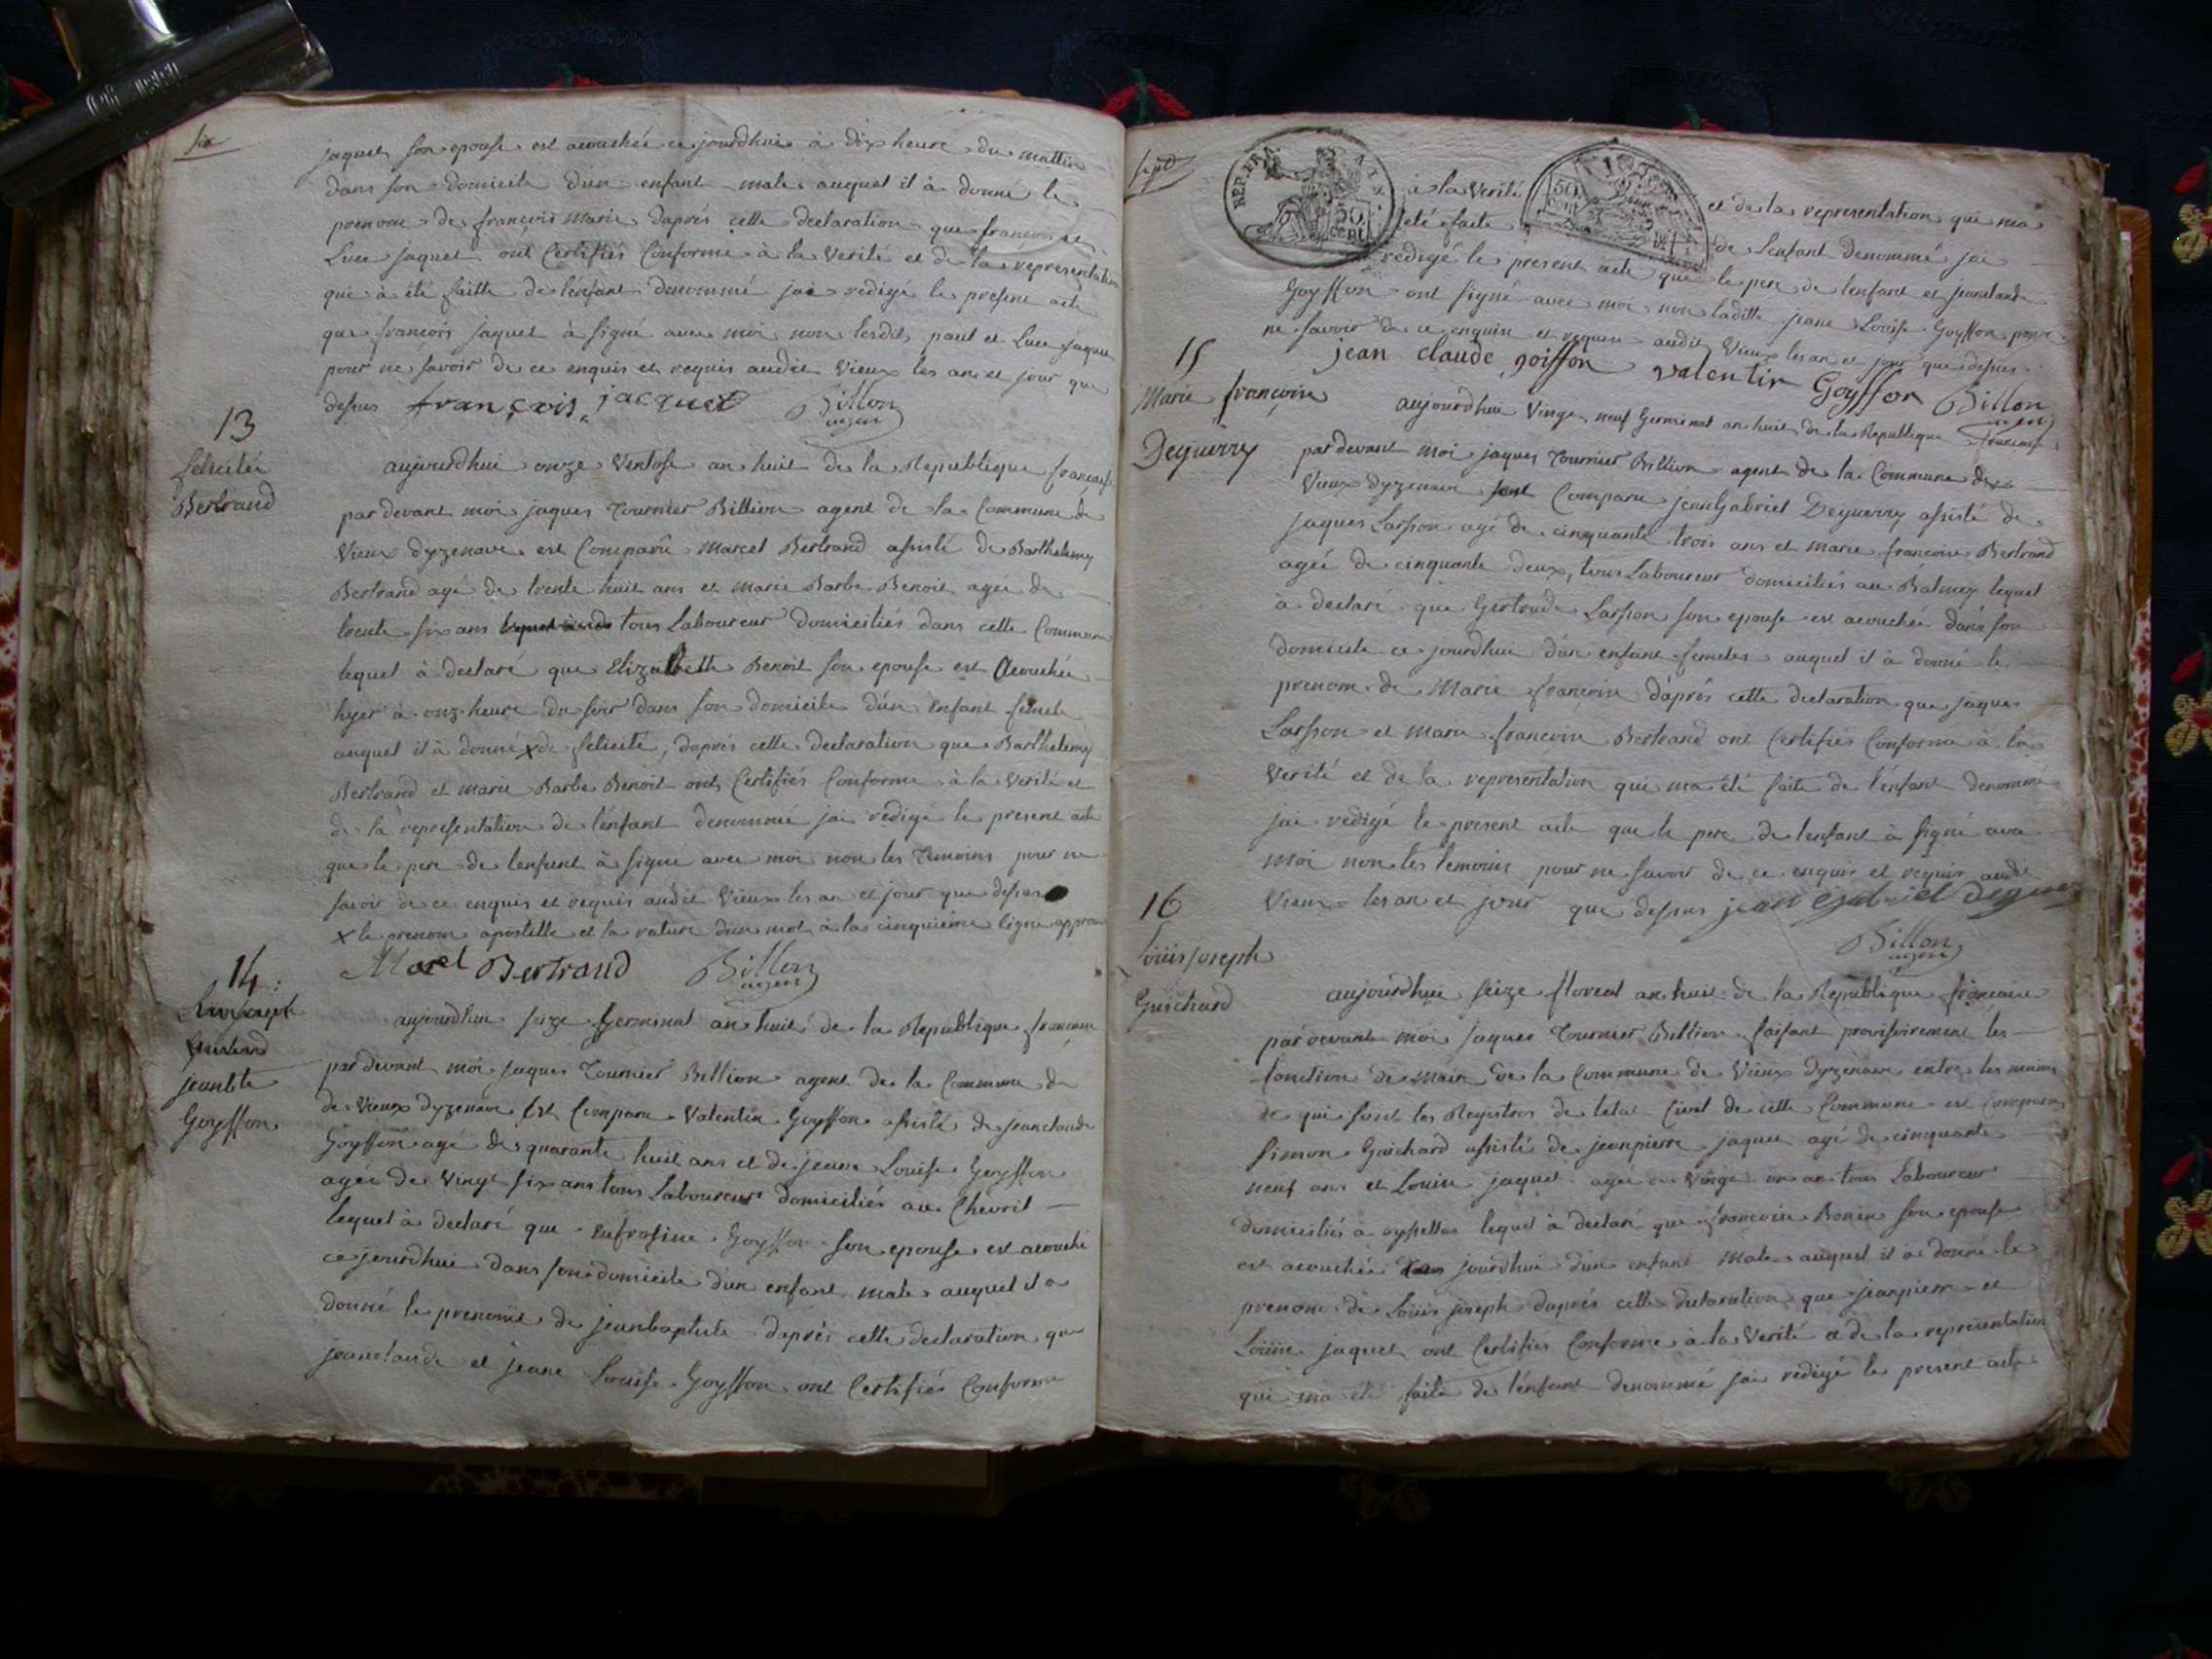 six
jaquet son epouse est acouchée ce jourdhui à dix heure du mattin
dans son domicile dun enfant male auquel il à donné le
prenom de françois Marie daprès cette declaration que françois et
Luce jaquet ont Certifiés Conforme à la Verité et de la representation
qui à été faitte de lenfant denommé jai redigé le present acte
que françois jaquet à signé avec moi non lesdits paul et Luce jaquet
pour ne savoir de ce enquis et requis audit Vieux les an et jour que
dessus françois jacquet Billon
agent
13
felicitée
Bertrand
aujourdhui onze Ventose an huit de la Republique francaise
pardevant moi jaques Tournier Billion agent de la Commune de
Vieux dyzenave est Comparü Marcel Bertrand assisté de Barthelemy
Bertrand agé de trente huit ans et marie Barbe Benoit agée de
trente six ans tous Laboureur domiciliés dans cette Commune
lequel à declaré que Elizabeth Benoit son epouse est Acouchée
hyer à onz heure du soir dans son domicile dun enfant femele
auquel il à donné x de felicité, daprés cette declaration que Barthelemy
Bertrand et marie Barbe Benoit onts Certifiés Conforme à la Verité et
de la representation de lenfant denommé jai redigé le present acte
que le pere de lenfant à signé avec moi non les Temoins pour ne
savoir de ce enquis et requis audit Vieux les an et jour que dessus
x le prenom apostille et la rature dun mot à la cinquieme ligne approu
Marcel Bertrand Billon
agent
14
jeanbte
Goyffon
aujourdhui seize Germinal an huit de la Republique francaise
pardevant moi jaques Tournier Billion agent de la Commune de
de Vieux dyzenave Est Comparu Valentin Goyffon assisté de jeanclaude
Goyffon agé de quarante huit ans et de jeane Louise Goyffon
agée de Vingt six ans tous Laboureur domiciliés au Chevril
lequel à declaré que Eufrosine Goyffon son epouse est acouché
ce jourdhui dans son domicile dun enfant male auquel il a
donné le prenom de jeanbaptiste daprés cette declaration que
jeanclaude et jeane Louise Goyffon ont Certifiés Conforme
sept
REP. FRA.
50
cent
à la Verité et de la representation qui ma
été faite de lenfant denommé jai
redigé le present acte que le pere de lenfant et jeanclaude
Goyffon ont signé avec moi non laditte jeane Louise Goyffon pour
ne savoir de ce enquise et requise audit Vieux les an et jour que dessus
jean claude goiffon valentin Goyffon Billon
agent
15
Marie françoise
Deguerry
aujourdhui Vingt neuf Germinal an huit de la Republique francaise
pardevant moi jaques Tournier Billion agent de la Commune de
Vieux dyzenave Comparu jean Gabriel Deguerry assisté de
jaques Larsson agé de cinquante trois ans et marie francoise Bertrand
agée de cinquante deux, tous Laboureur domiciliés au Balmey lequel
à declaré que Gertrude Larsson son epouse est acouchée dans son
domicile ce jourdhui dun enfant femele auquel il à donné le
prenom de Marie francoise daprés cette declaration que jaques
Larsson et marie francoise Bertrand ont Certifiés Conforme à la
Verité et de la representation qui ma été faite de lenfant denommé
jai redigé le present acte que le pere de lenfant à signé avec
moi non les temoins pour ne savoir de ce enquis et requis audit
Vieux les an et jour que dessus jean gabriel
Billon
agent
16
Louis joseph
Guichard
aujourdhui seize floreal an huit de la Republique francaise
pardevant moi jaques Tournier Billion faisant provisoirement les
fonction de Maire de la Commune de Vieux dyzenave entre les mains
de qui sont les Registres de letat Civil de cette Commune est comparu
Simon Guichard assisté de jeanpierre jaquet agé de cinquante
neuf ans et Louise jaquet agée de Vingt un an tous Laboureur
domiciliés à lequel à declaré que francoise son epouse
est acouchée jourdhui dun enfant Male auquel il à donné le
prenom de Louis joseph daprés cette declaration que jeanpierre et
Louise jaquet ont Certifiés Conforme à la Verité et de la representation
qui ma été faite de lenfant denommé jai redigé le present acte